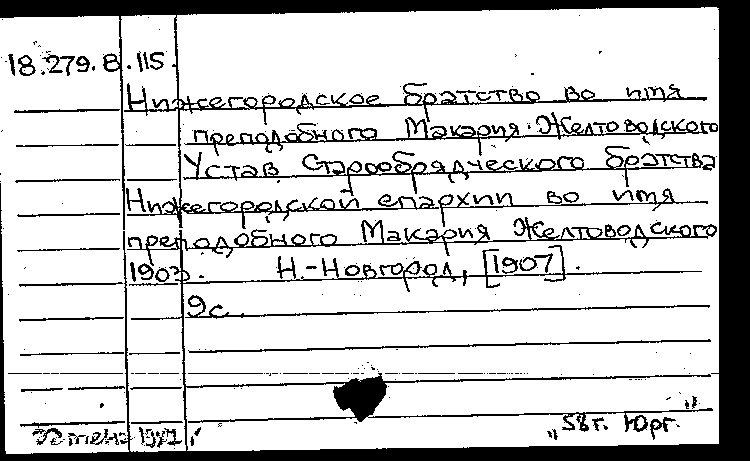 18.279.8.115.
Нижегородское братство во имя
преподобного Макария Желтоводского
Устав Старообрядческого братства
Нижегородской епархии во имя
преподобного Макария Желтоводского
1907. Н.-Новгород, [1907].
9с.
„58г. Юрг.“